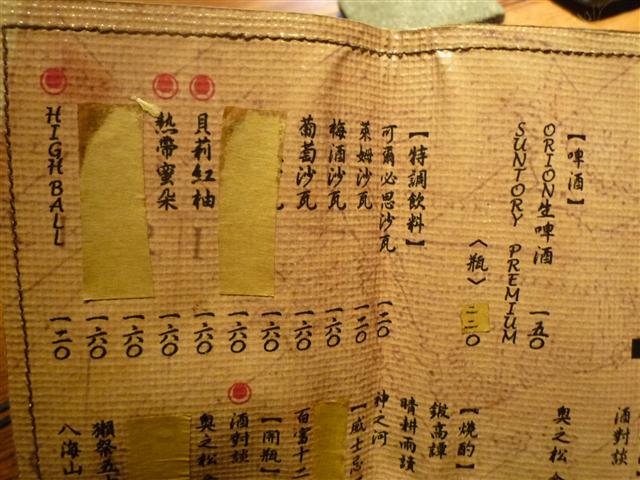 【啤酒】
ORION生啤酒 一五〇
SUNTORY PREMIUM
〈瓶〉 二二〇
【特調飲料】
可爾必思沙瓦 一二〇
萊姆沙瓦 一二〇
梅酒沙瓦 一六〇
葡萄沙瓦 一六〇
一六〇
一六〇
貝莉紅柚 一六〇
熱帶蜜朵 一六〇
一六〇
一六〇
HIGH BALL 一二〇
酒對談
奧之松
【燒酌】
鍛高譚
晴耕雨讀
神之河
【威士忌
百富十二
【開瓶】
酒對談
奧之松
獺祭五
八海山